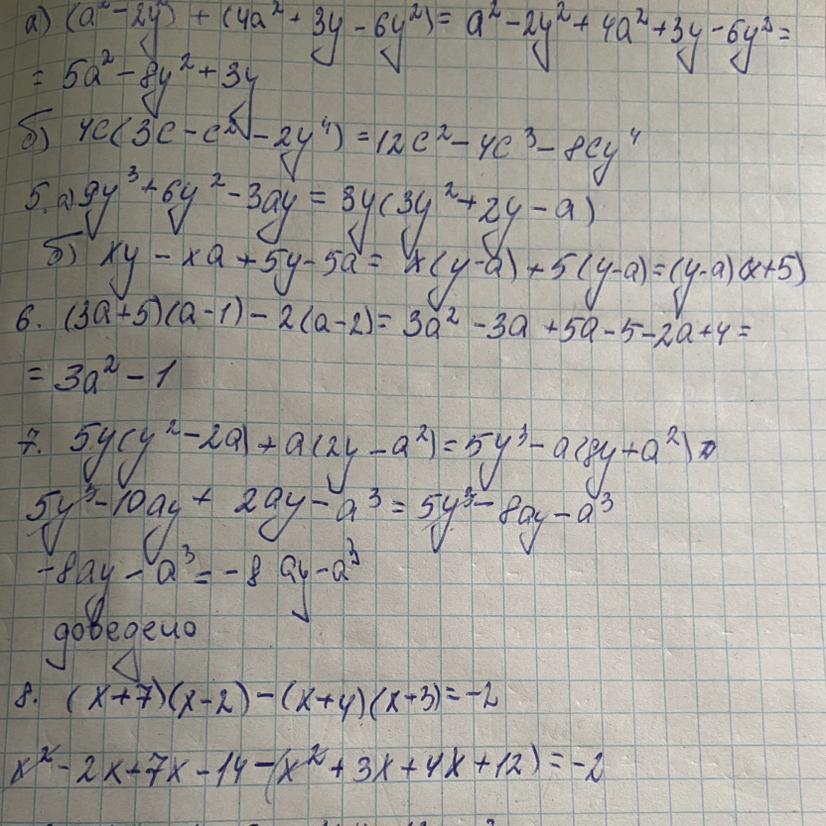 а) (a² - 2y²) + (4a² + 3y - 6y²) = a² - 2y² + 4a² + 3y - 6y² =
= 5a² - 8y² + 3y
б) 4c(3c - c² - 2y⁴) = 12c² - 4c³ - 8cy⁴
5. а) 9y³ + 6y² - 3ay = 3y(3y² + 2y - a)
б) xy - xa + 5y - 5a = x(y-a) + 5(y-a) = (y-a)(x+5)
6. (3a+5)(a-1) - 2(a-2) = 3a² - 3a + 5a - 5 - 2a + 4 =
= 3a² - 1
7. 5y(y² - 2a) + a(2y - a²) = 5y³ - a(8y + a²)
5y³ - 10ay + 2ay - a³ = 5y³ - 8ay - a³
-8ay - a³ = -8ay - a³
доведено
8. (x+7)(x-2) - (x+4)(x+3) = -2
x² - 2x + 7x - 14 - (x² + 3x + 4x + 12) = -2